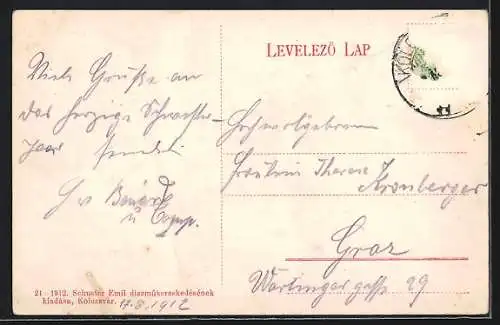 LEVELEZŐ LAP
Viele Grüße an
das herzige Schwester-
paar sendet
u
Hochwohlgeboren
Fräulein Therese
Kronberger
Graz
Wartingergasse 29
21 - 1912. Schuster Emil díszműkereskedésének
kiadása, Kolozsvár.
17.8.1912
KOLO